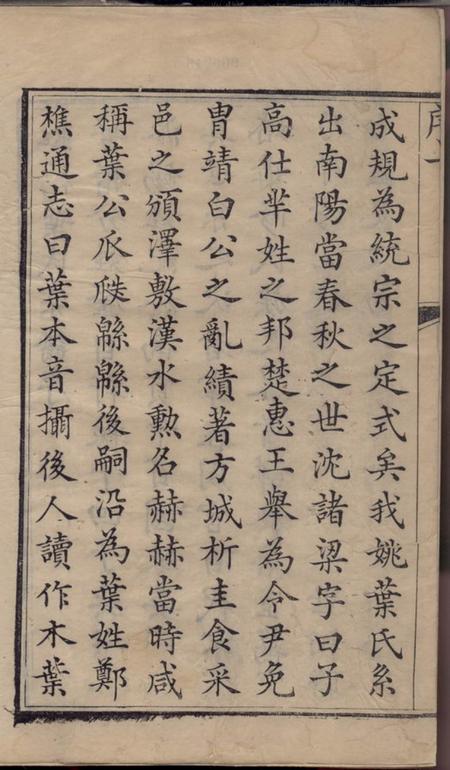 成規為統宗之定式矣我姚葉氏系
出南陽當春秋之世沈諸梁字曰子
高仕羋姓之邦楚惠王舉為令尹免
胄靖白公之亂績著方城析圭食采
邑之頒澤敷漢水勲名赫赫當時咸
稱葉公瓜瓞緜緜後嗣沿為葉姓鄭
樵通志曰葉本音攝後人讀作木葉